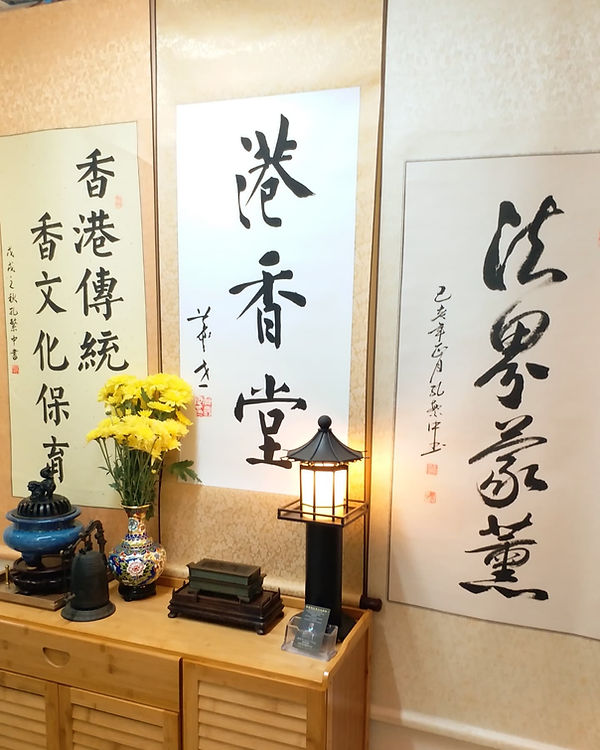 香港傳統
香文化保育
戊戌之秋孔繁中書
港香堂
法界蒙薰
己亥年正月孔繁中书